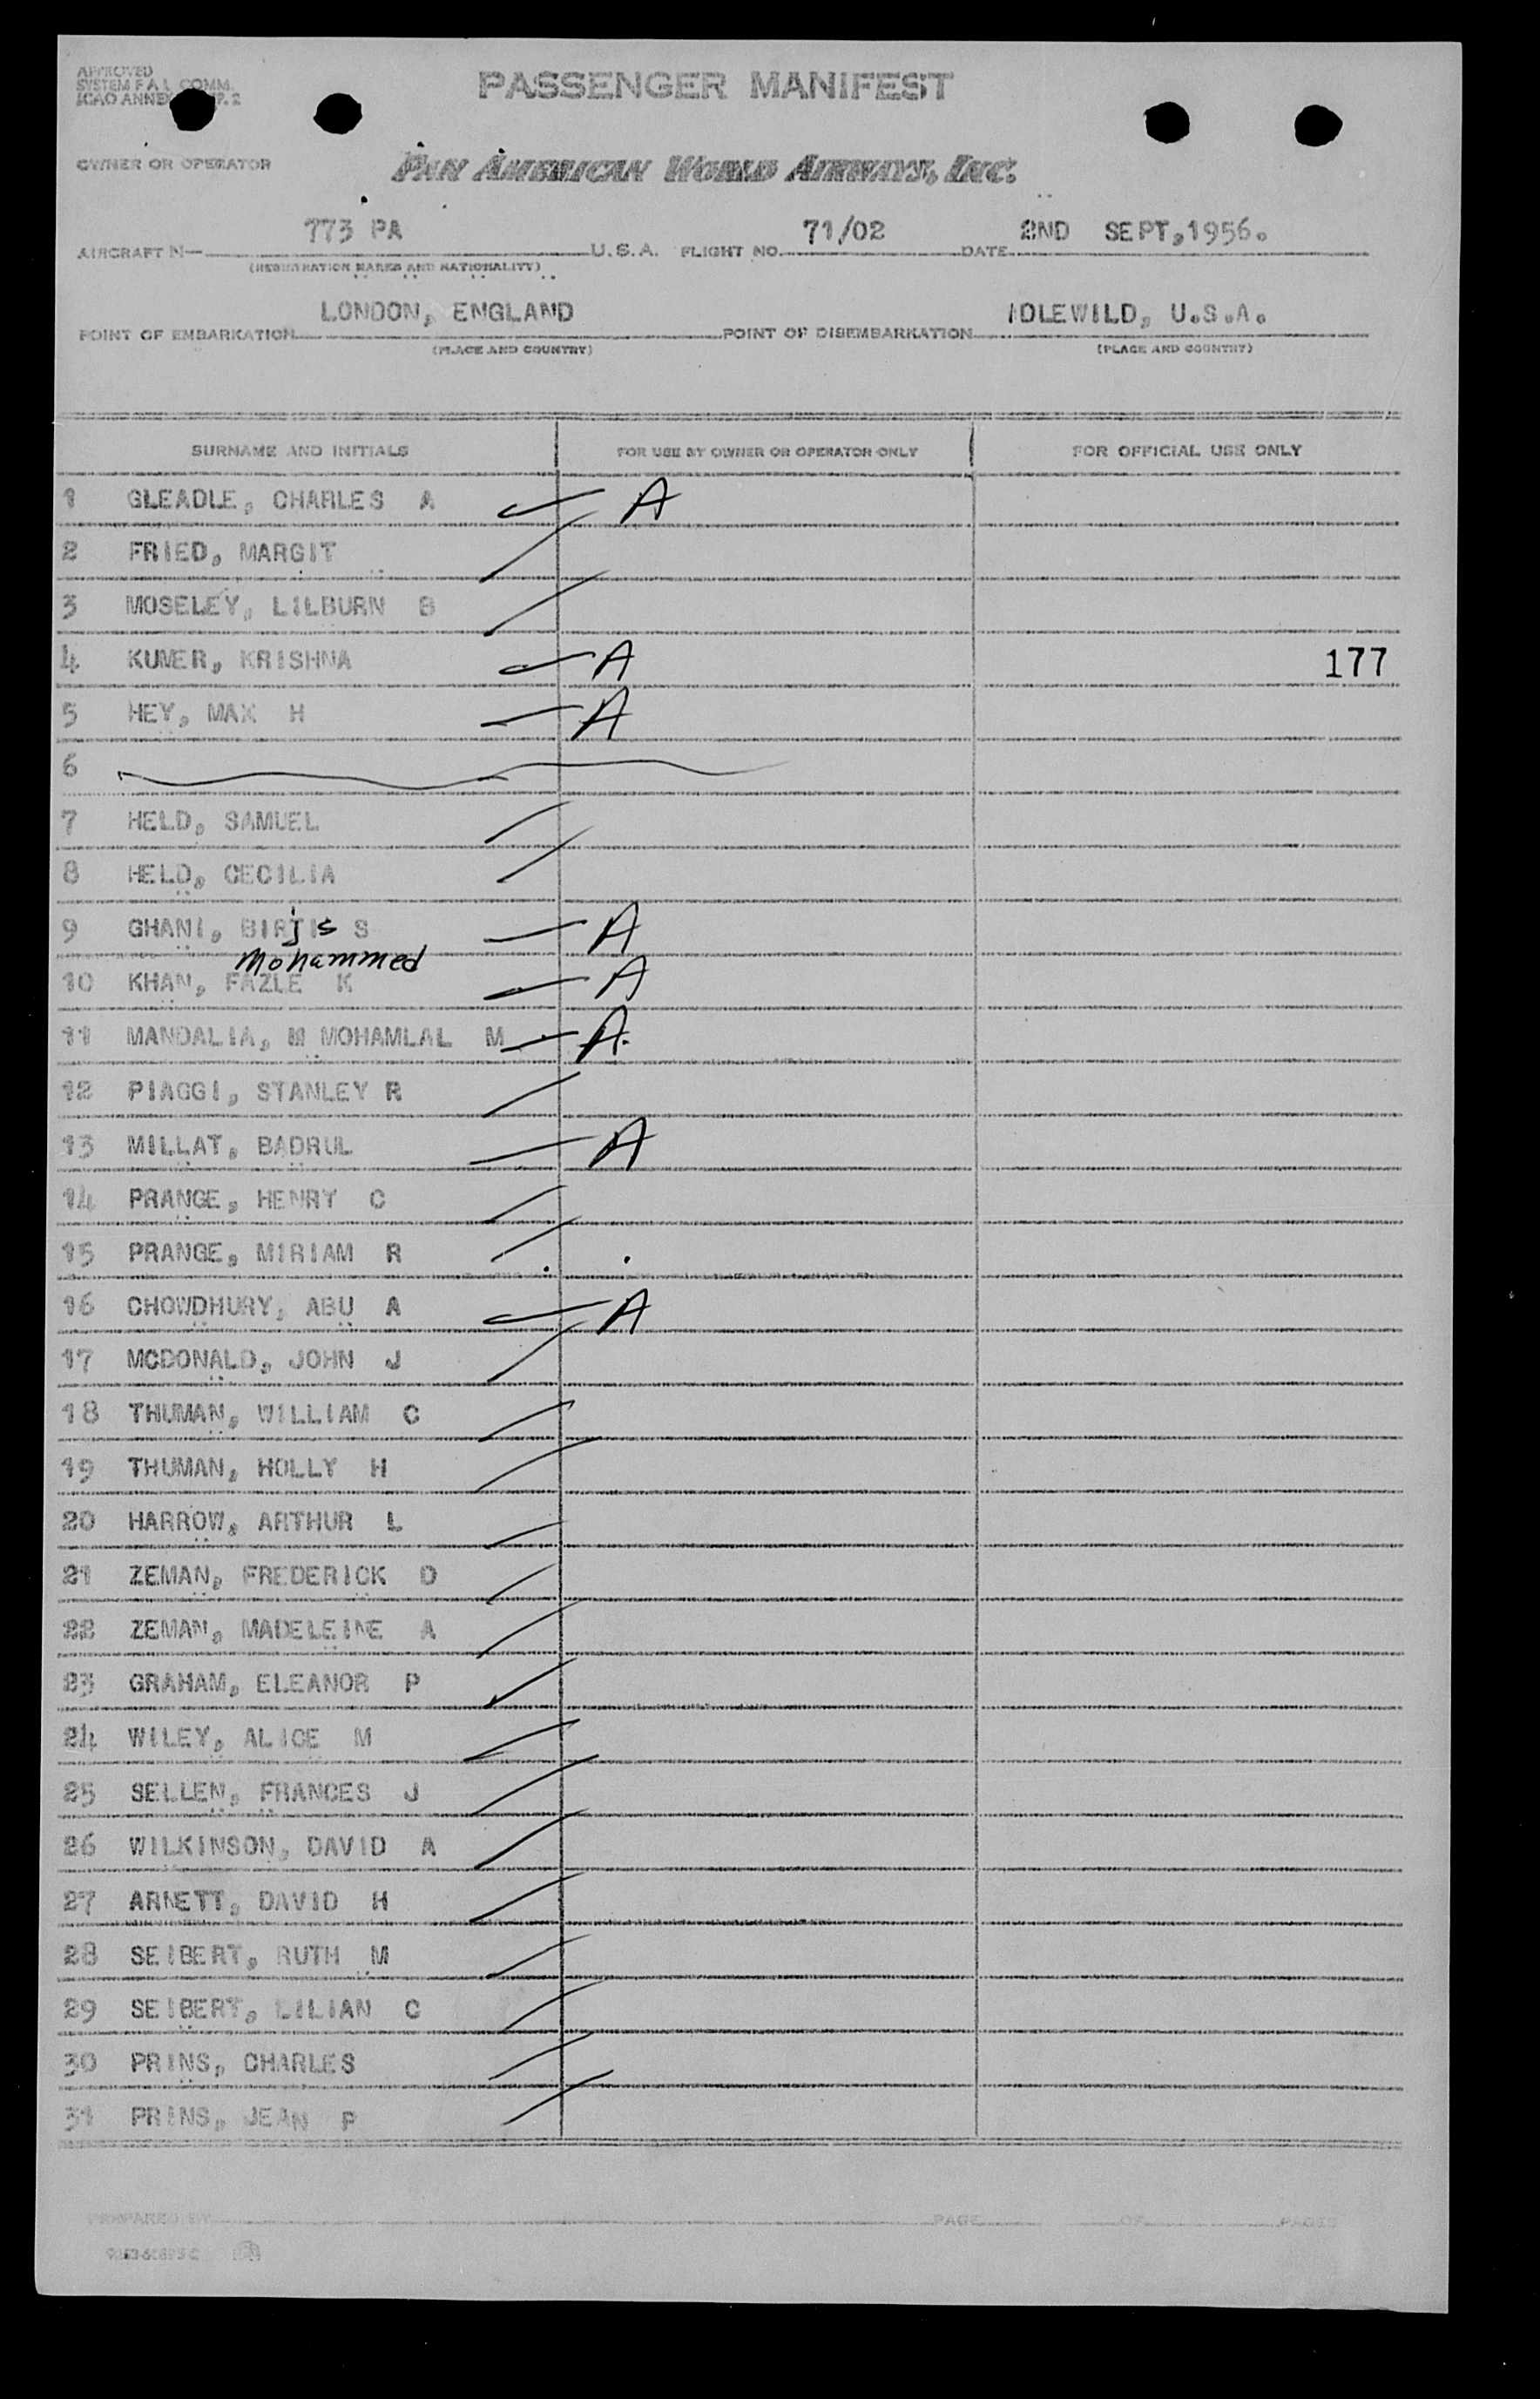 APPROVED
SYSTEM F A L COMM.
ICAO ANNEX P. 2
PASSENGER MANIFEST
OWNER OR OPERATOR PAN AMERICAN WORLD AIRWAYS, INC.
AIRCRAFT N— 773 PA U.S.A. FLIGHT NO. 71/02 DATE 2ND SEPT,1956.
(REGISTRATION MARKS AND NATIONALITY)
POINT OF EMBARKATION LONDON, ENGLAND POINT OF DISEMBARKATION IDLEWILD, U.S.A.
(PLACE AND COUNTRY) (PLACE AND COUNTRY)
SURNAME AND INITIALS FOR USE BY OWNER OR OPERATOR ONLY FOR OFFICIAL USE ONLY
1 GLEADLE, CHARLES A A
2 FRIED, MARGIT
3 MOSELEY, LILBURN B
4 KUMER, KRISHNA A 177
5 HEY, MAX H A
6
7 HELD, SAMUEL
8 HELD, CECILIA
9 GHANI, BIRjis S A
Mohammed
10 KHAN, FAZLE K A
11 MANDALIA, M MOHAMLAL M A
12 PIAGGI, STANLEY R
13 MILLAT, BADRUL A
14 PRANGE, HENRY C
15 PRANGE, MIRIAM R
16 CHOWDHURY, ABU A A
17 MCDONALD, JOHN J
18 THUMAN, WILLIAM C
19 THUMAN, HOLLY H
20 HARROW, ARTHUR L
21 ZEMAN, FREDERICK D
22 ZEMAN, MADELEINE A
23 GRAHAM, ELEANOR P
24 WILEY, ALICE M
25 SELLEN, FRANCES J
26 WILKINSON, DAVID A
27 ARNETT, DAVID H
28 SEIBERT, RUTH M
29 SEIBERT, LILIAN C
30 PRINS, CHARLES
31 PRINS, JEAN P
PREPARED BY PAGE OF PAGES